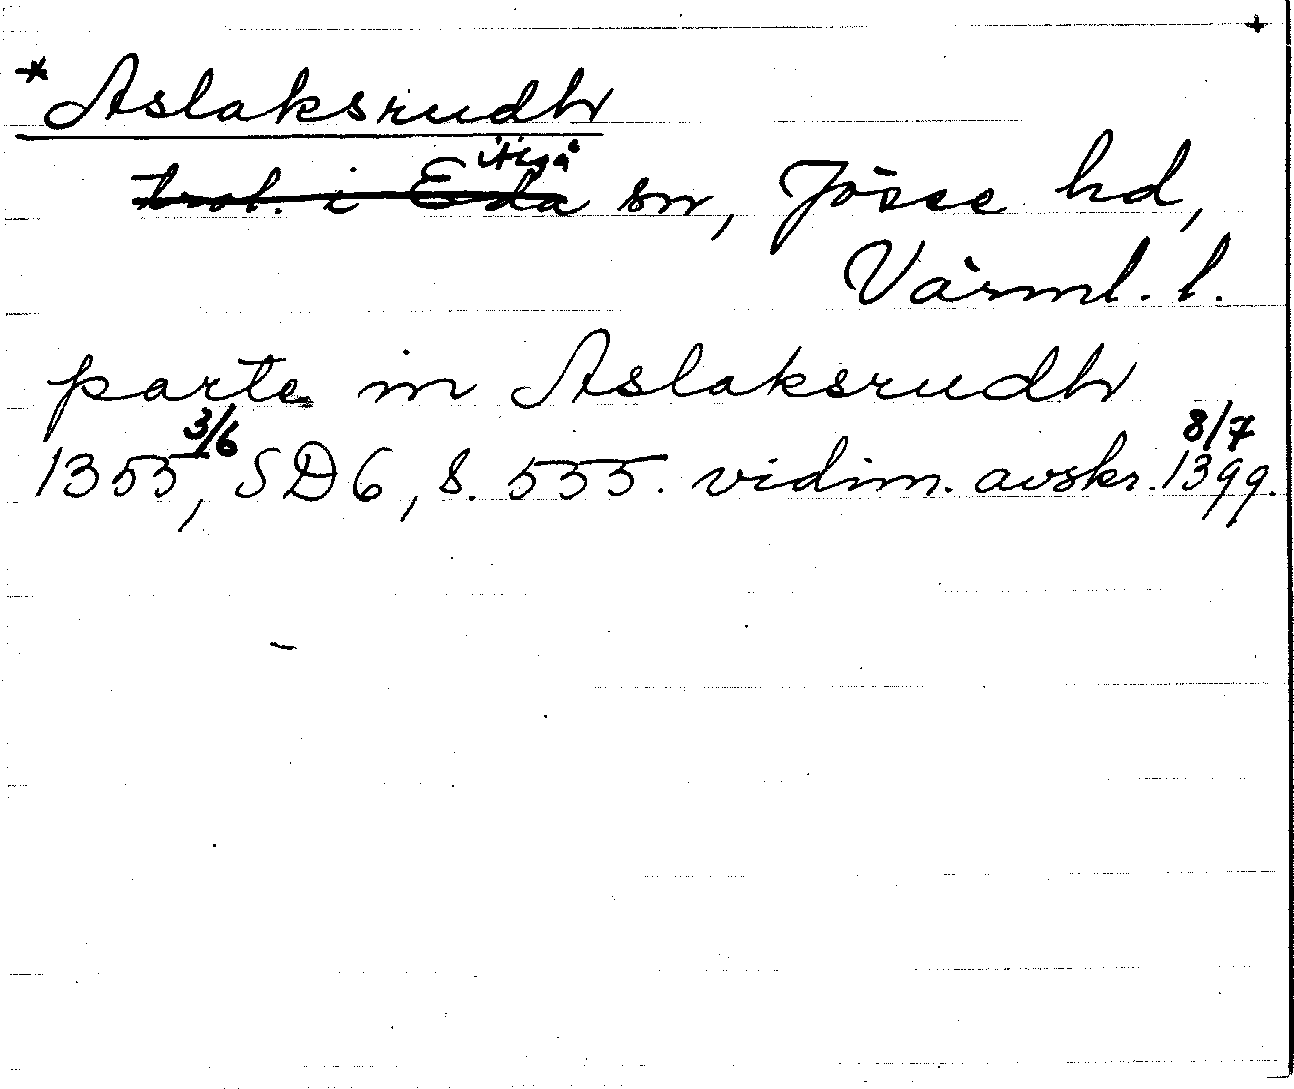 +
*Aslaksrudhr
trol. i Eda älgå sn, Jösse hd,
Värml. l.
parte in Aslaksrudhr
1353 3/6, SD 6, s. 555. vidim. avskr. 1399 8/7.